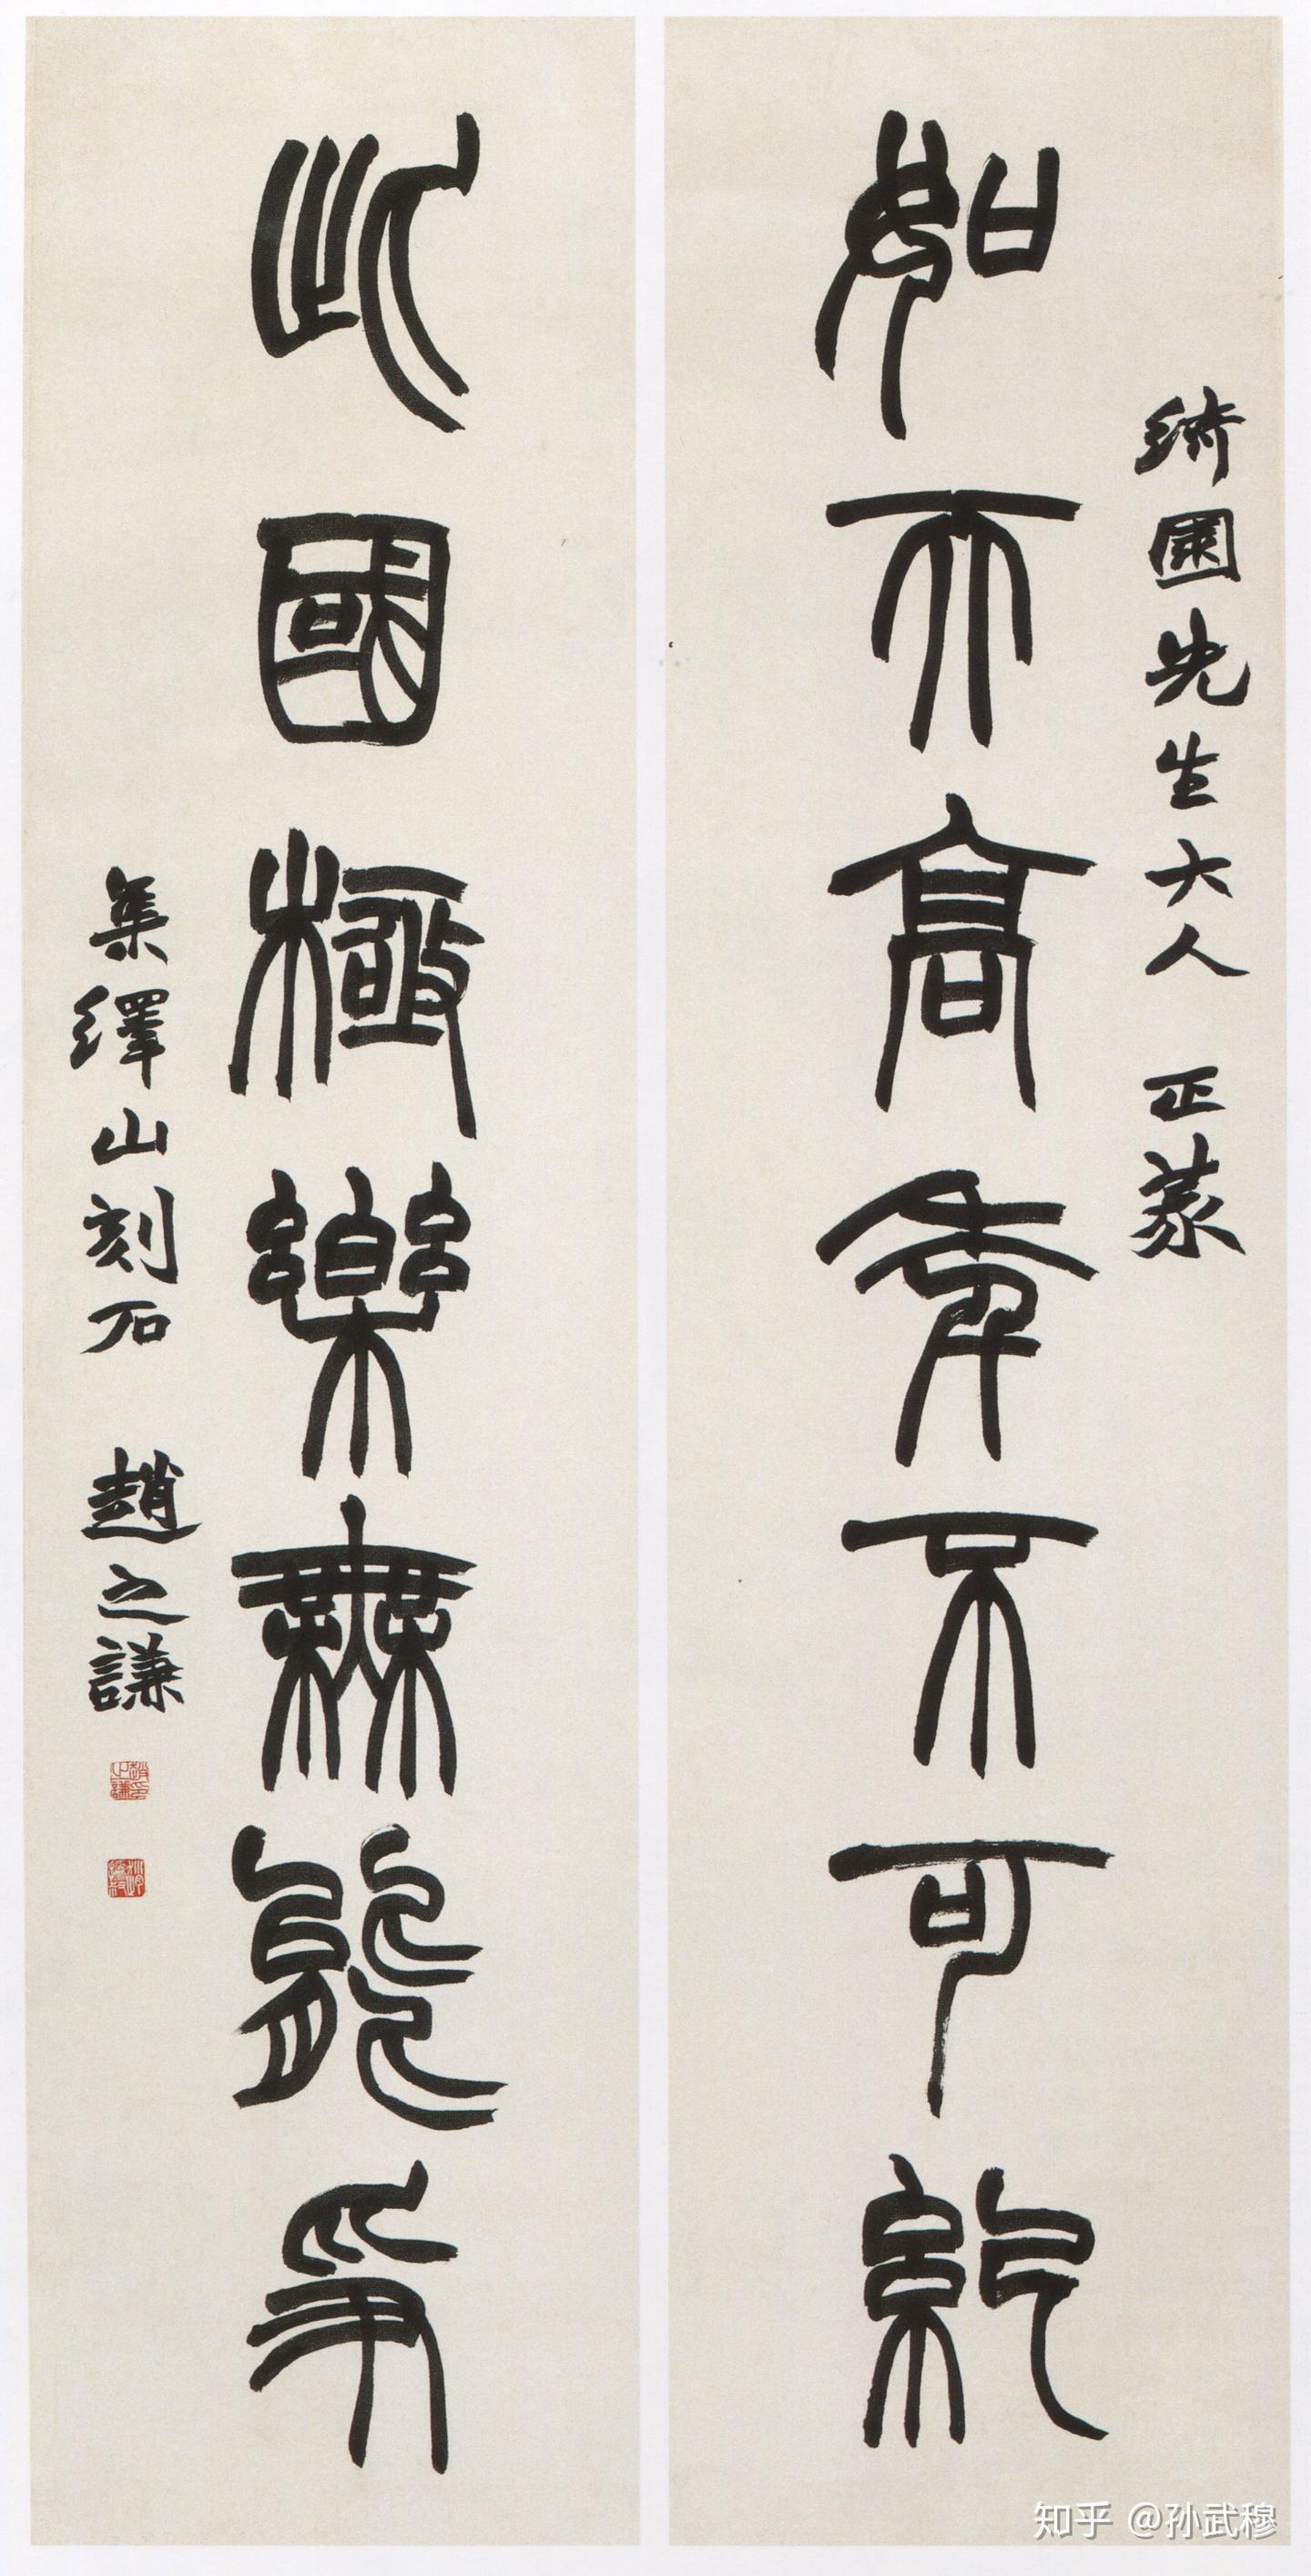 綺園先生大人 正篆
如天高年不可紀
此國極樂無能爭
集繹山刻石 趙之謙
知乎 @孙武穆